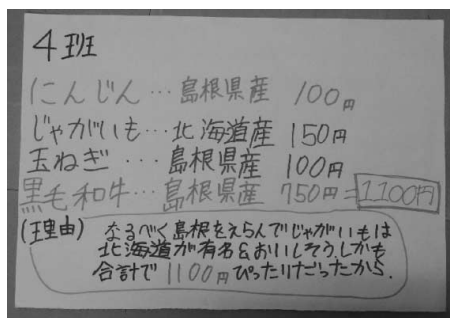 4班
にんじん…島根県産 100円
じゃがいも…北海道産 150円
玉ねぎ...島根県産 100円
黒毛和牛…島根県産 750円=1100円
(理由) なるべく島根をえらんでじゃがいもは
北海道が有名&おいしそう。しかも
合計で1100円ぴったりだったから。